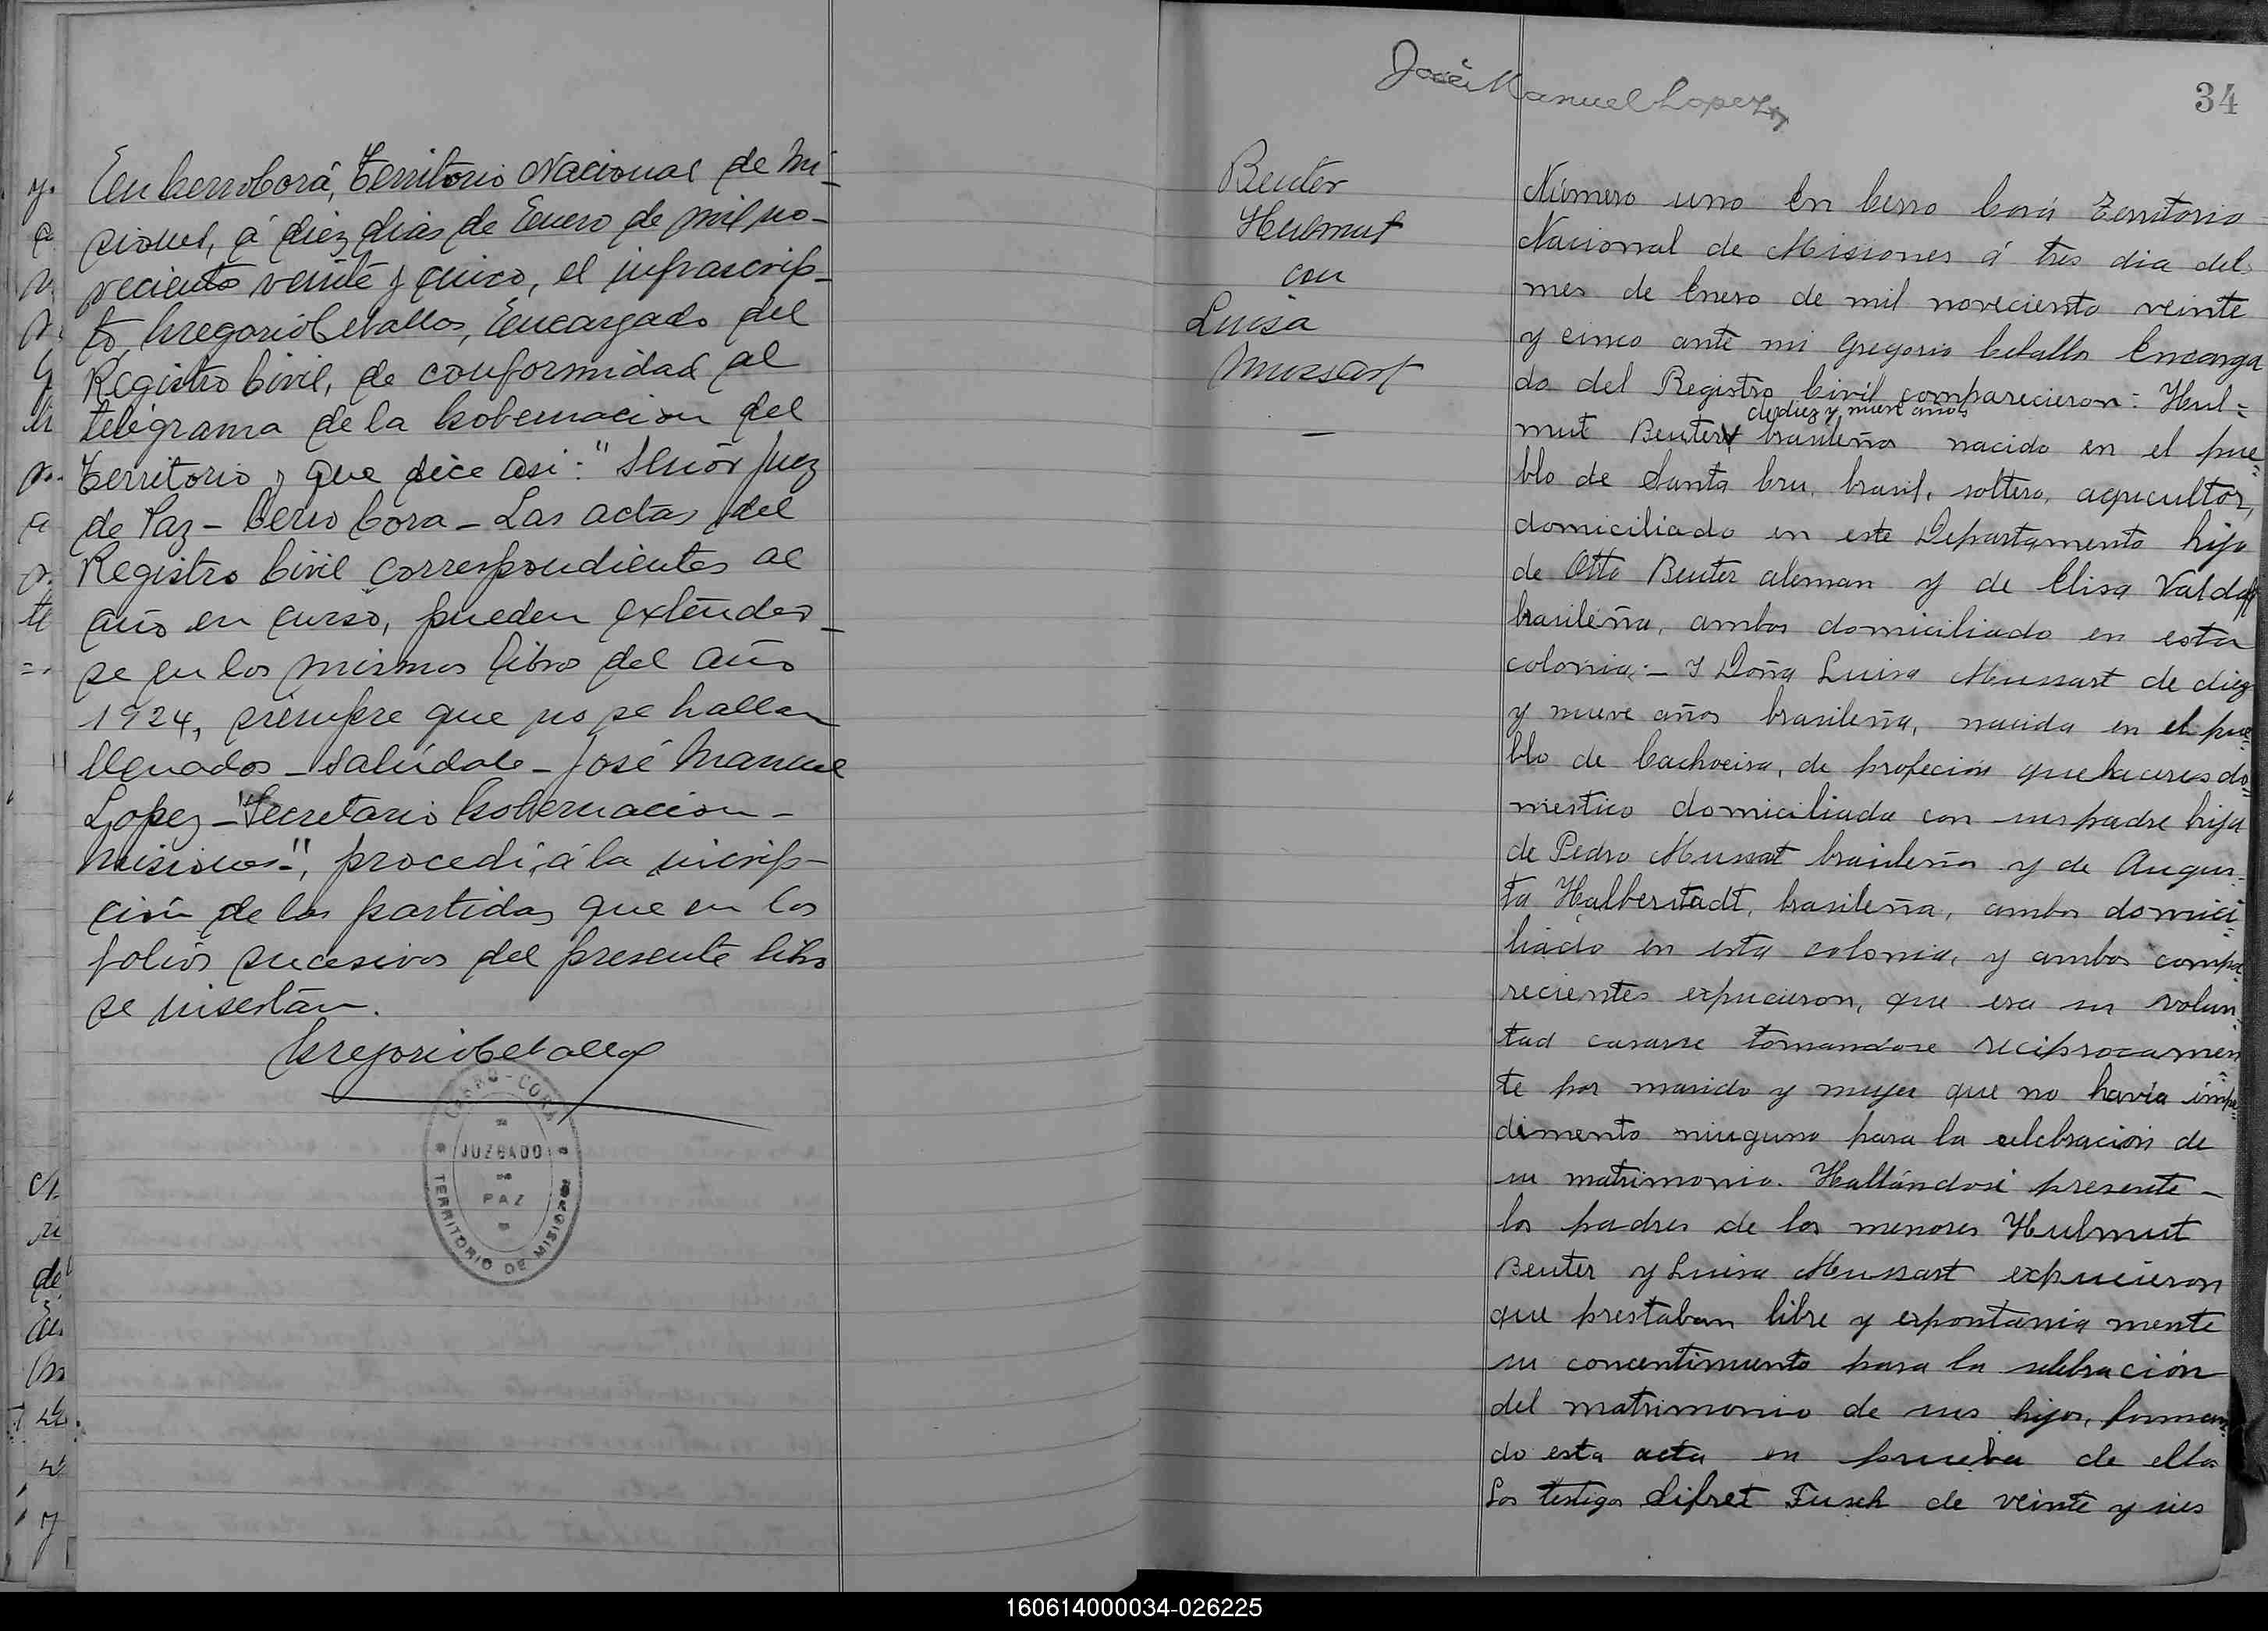 En Cerro Corá, Territorio Nacional de Mi-
siones, á diez dias de Enero de mil no-
veciento veinte y cinco, el infrascrip-
to, Gregorio Ceballos, Encargado del
Registro Civil, de conformidad al
telégrama de la Gobernacion del
Territorio y que dice asi: "Señor Juez
de Paz - Cerro Cora - Las actas del
Registro Civil correspondientes al
año en curso, pueden extender-
se en los mismos libros del año
1924, siempre que no se hallan
llenados - Salúdale - José Manuel
Lopez - Secretario Gobernacion -
Misiones -", procedí, á la inscrip-
ción de las partidas que en los
folios sucesivos del presente libro
se insertán.
Gregorio Ceballos
CERRO-CORA
JUZGADO
PAZ
TERRITORIO DE MISIONES
José Manuel Lopez
34
Beuter
Hulmut
con
Luisa
Mussart
Número uno En Cerro Corá Territorio
Nacional de Misiones á tres dia del
mes de Enero de mil noveciento veinte
y cinco ante mi Gregorio Ceballos Encarga
do del Registro Civíl comparecieron: Hul=
de diez y nueve años
mut Beuter brasileño nacido en el pue=
blo de Santa Cru, brasil, soltero, agricultor,
domiciliado en este Departamento hijo
de Otto Beuter aleman y de Elisa
brasileña, ambos domiciliado en esta
colonia; - Y Doña Luisa Mussart de diez
y nueve años brasileña, nacida en el pue=
blo de Cachoeira, de profecion quehaceres do=
mestico domiciliada con sus padre hija
de Pedro Mussat brasileño y de Augus=
ta Halberstadt, brasileña, ambos domici=
liado en esta colonia, y ambos compa
recientes expucieron, que era su volun=
tad casarse tomandose reciprocamen
te por marido y mujer que no havía impe=
dimento ninguno para la celebración de
su matrimonio. Hallándose presente -
los padres de los menores Hulmut
Beuter y Luisa Mussart expucieron
que prestaban libre y espontania mente
su concentimiento para la selebración
del matrimonio de sus hijos, firman=
do esta acta en prueba de ello
Los testigos Sifret Fusch de veinte y seis